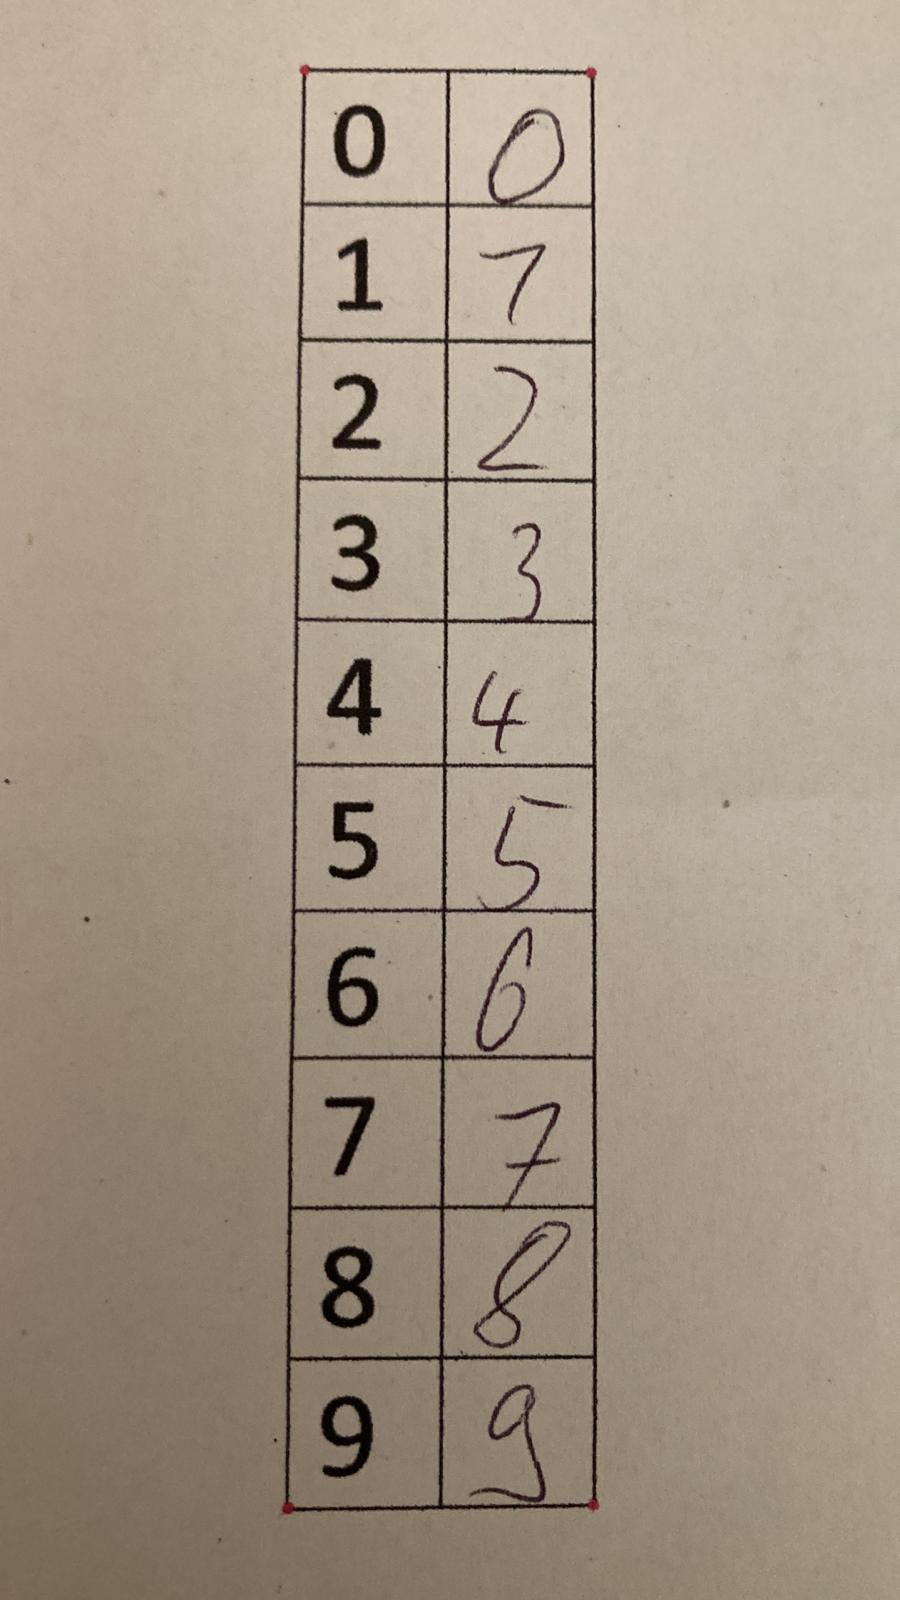 0 0
1 1
2 2
3 3
4 4
5 5
6 6
7 7
8 8
9 9